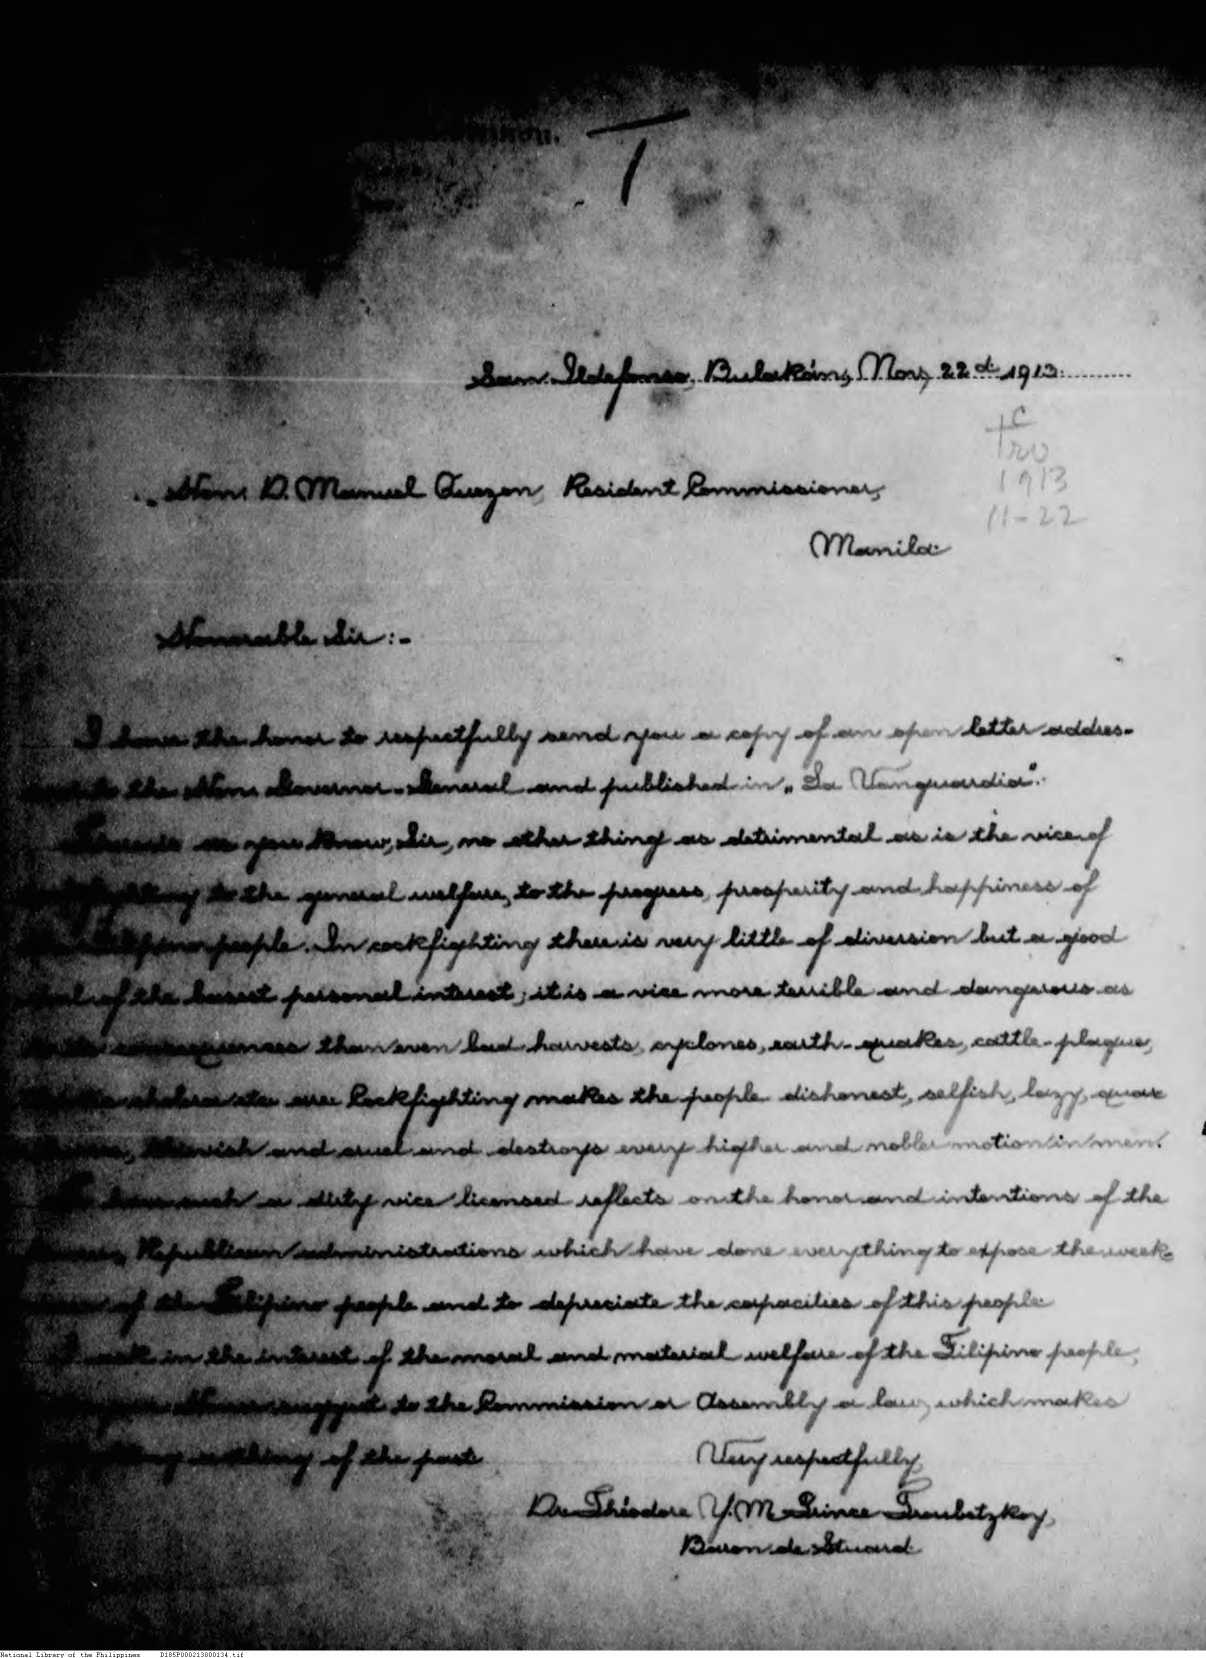 San Ildefonso, Bulakán, Nov, 22d 1913.
c
T
1913
11-22
Hon. D. Manuel Quezon, Resident Commissioner,
Manila.
Honorable Sir:-
I have the honor to respectfully send you a copy of an open letter addres-
to the Hon. Governor-General and published in „La Vanguardia".
as you know, Sir, no other thing as detrimental as is the vice of
to the general welfare, to the progress, prosperity and happiness of
Filipino people. In cockfighting there is very little of diversion but a good
deal of the basest personal interest; it is a vice more terrible and dangerous as
consequences than even bad harvests, cyclones, earth-quakes, cattle-plague,
cholera etc. are. Cockfighting makes the people dishonest, selfish, lazy, quar
thievish and cruel and destroys every higher and nobler motion in men.
To have such a dirty vice licensed reflects on the honor and intentions of the
Republican administrations which have done everything to expose the weak-
of the Filipino people and to depreciate the capacities of this people.
I in the interest of the moral and material welfare of the Filipino people,
Honor suggest to the Commission or Assembly a law, which makes
of the past.
Very respectfully,
Dr. Théodore Y. M. Prince Troubetzkoy,
Baron de Stuard.
National Library of the Philippines D185P000213000134.tif